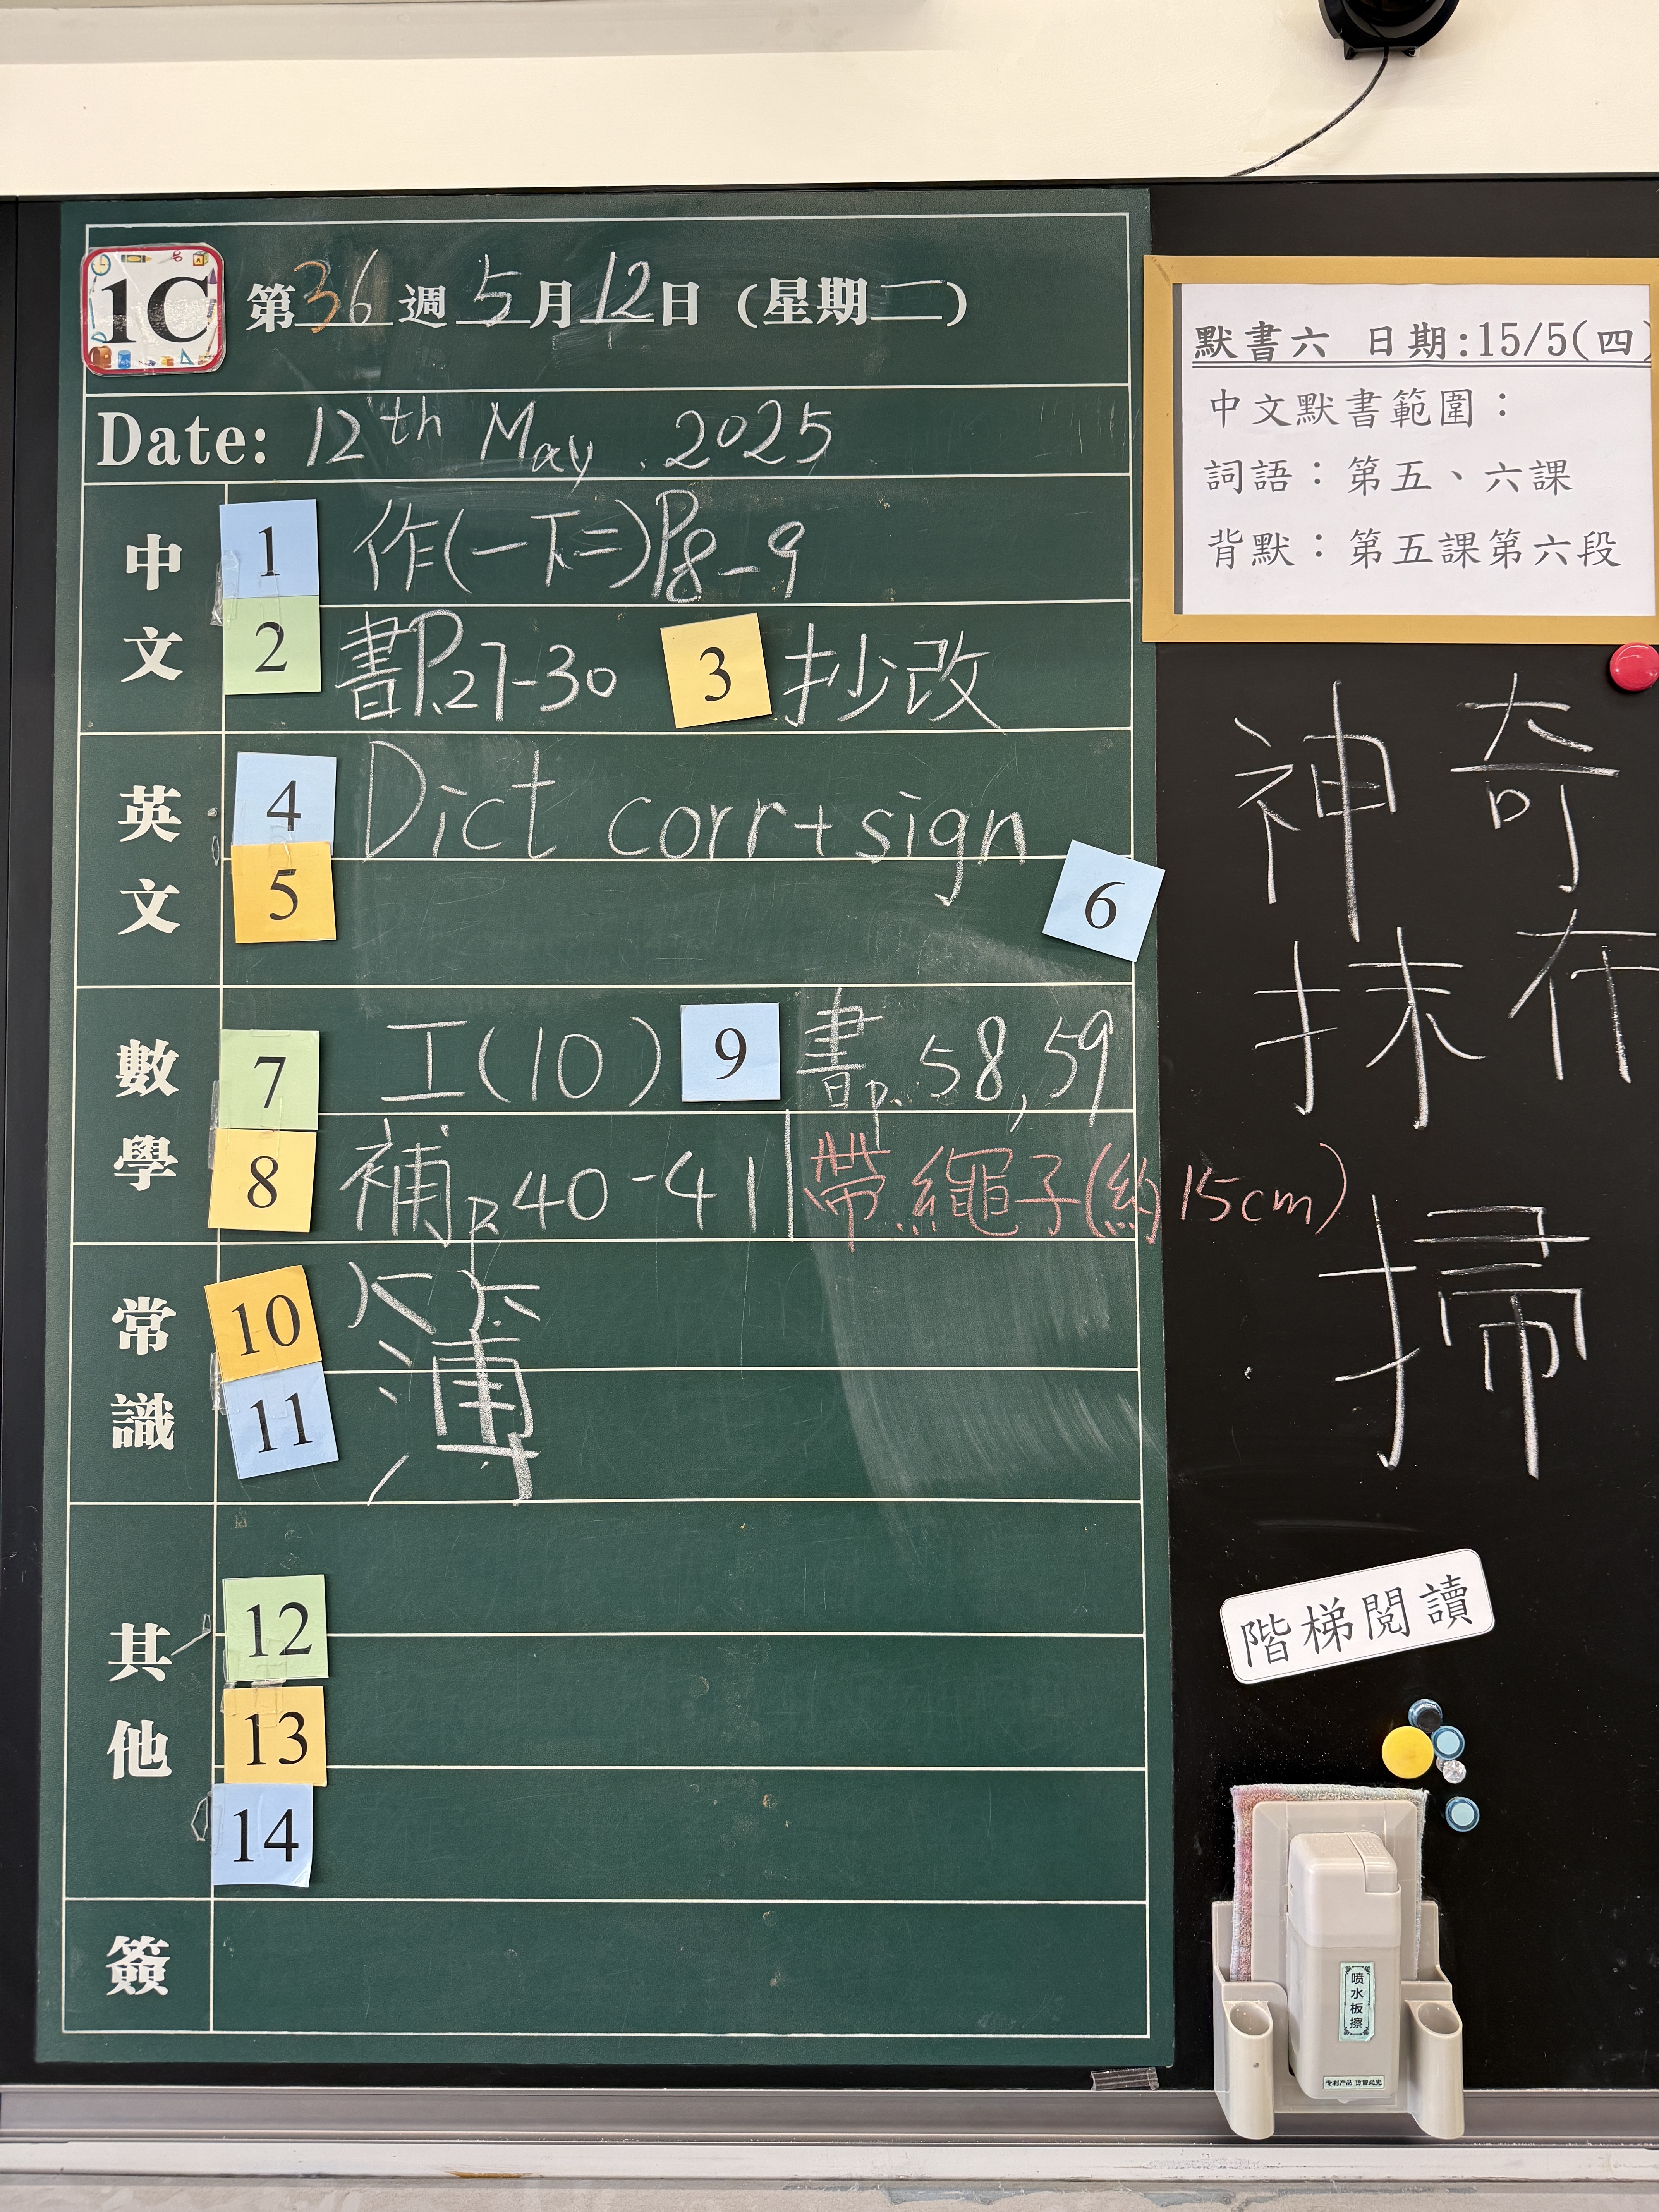 1C 第36週5月12日(星期一)
Date: 12th May . 2025
中文
1 作(一下二)P8-9
2 書P.27-30 3 抄改
英文
4 Dict corr+sign
5
6
數學
7 工(10) 9 書p.58,59
8 補p.40-41 帶繩子(約15cm)
常識
10 簿
11
其他
12
13
14
簽
默書六 日期:15/5(四)
中文默書範圍：
詞語：第五、六課
背默：第五課第六段
神奇
抹布
掃
階梯閱讀
喷水板擦
专利产品 仿冒必究